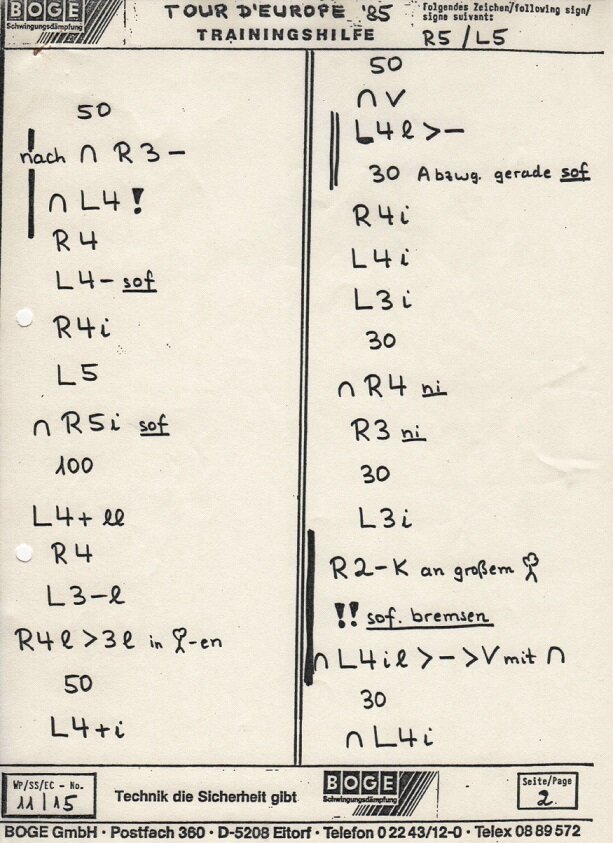 BOGE
Schwingungsdämpfung
TOUR D'EUROPE '85
TRAININGSHILFE
Folgendes Zeichen/following sign/
signe suivant:
R5/L5
50
nach ∩ R3-
∩ L4!
R4
L4- sof
R4i
L5
∩ R5i sof
100
L4+ ll
R4
L3-l
R4l>3l in -en
50
L4+i
50
∩ V
L4l>-
30 Abzwg. gerade sof
R4i
L4i
L3i
30
∩ R4 ni
R3 ni
30
L3i
R2-K an großem
!! sof. bremsen
∩ L4il>->V mit ∩
30
∩ L4i
WP/SS/EC - No.
11/15
Technik die Sicherheit gibt
BOGE
Schwingungsdämpfung
Seite/Page
2.
BOGE GmbH · Postfach 360 · D-5208 Eitorf · Telefon 0 22 43/12-0 · Telex 08 89 572